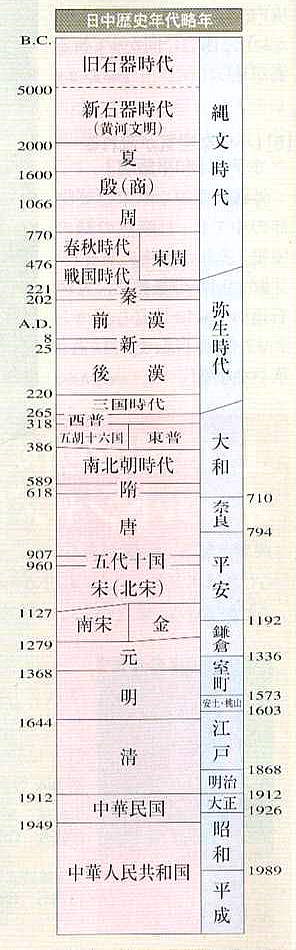 日中歴史年代略年
B.C.
旧石器時代
5000
新石器時代
(黄河文明)
縄文時代
2000
夏
1600
殷(商)
1066
周
770
春秋時代
東周
476
戦国時代
221
秦
202
前漢
弥生時代
A.D.
8
新
25
後漢
220
三国時代
265
西晋
318
五胡十六国
東晋
大和
386
南北朝時代
589
隋
618
唐
710
奈良
794
平安
907
五代十国
960
宋(北宋)
1127
南宋
金
1192
鎌倉
1279
元
1336
室町
1368
明
1573
安土・桃山
1603
江戸
1644
清
1868
明治
1912
1912
中華民国
大正
1926
昭和
1949
中華人民共和国
1989
平成